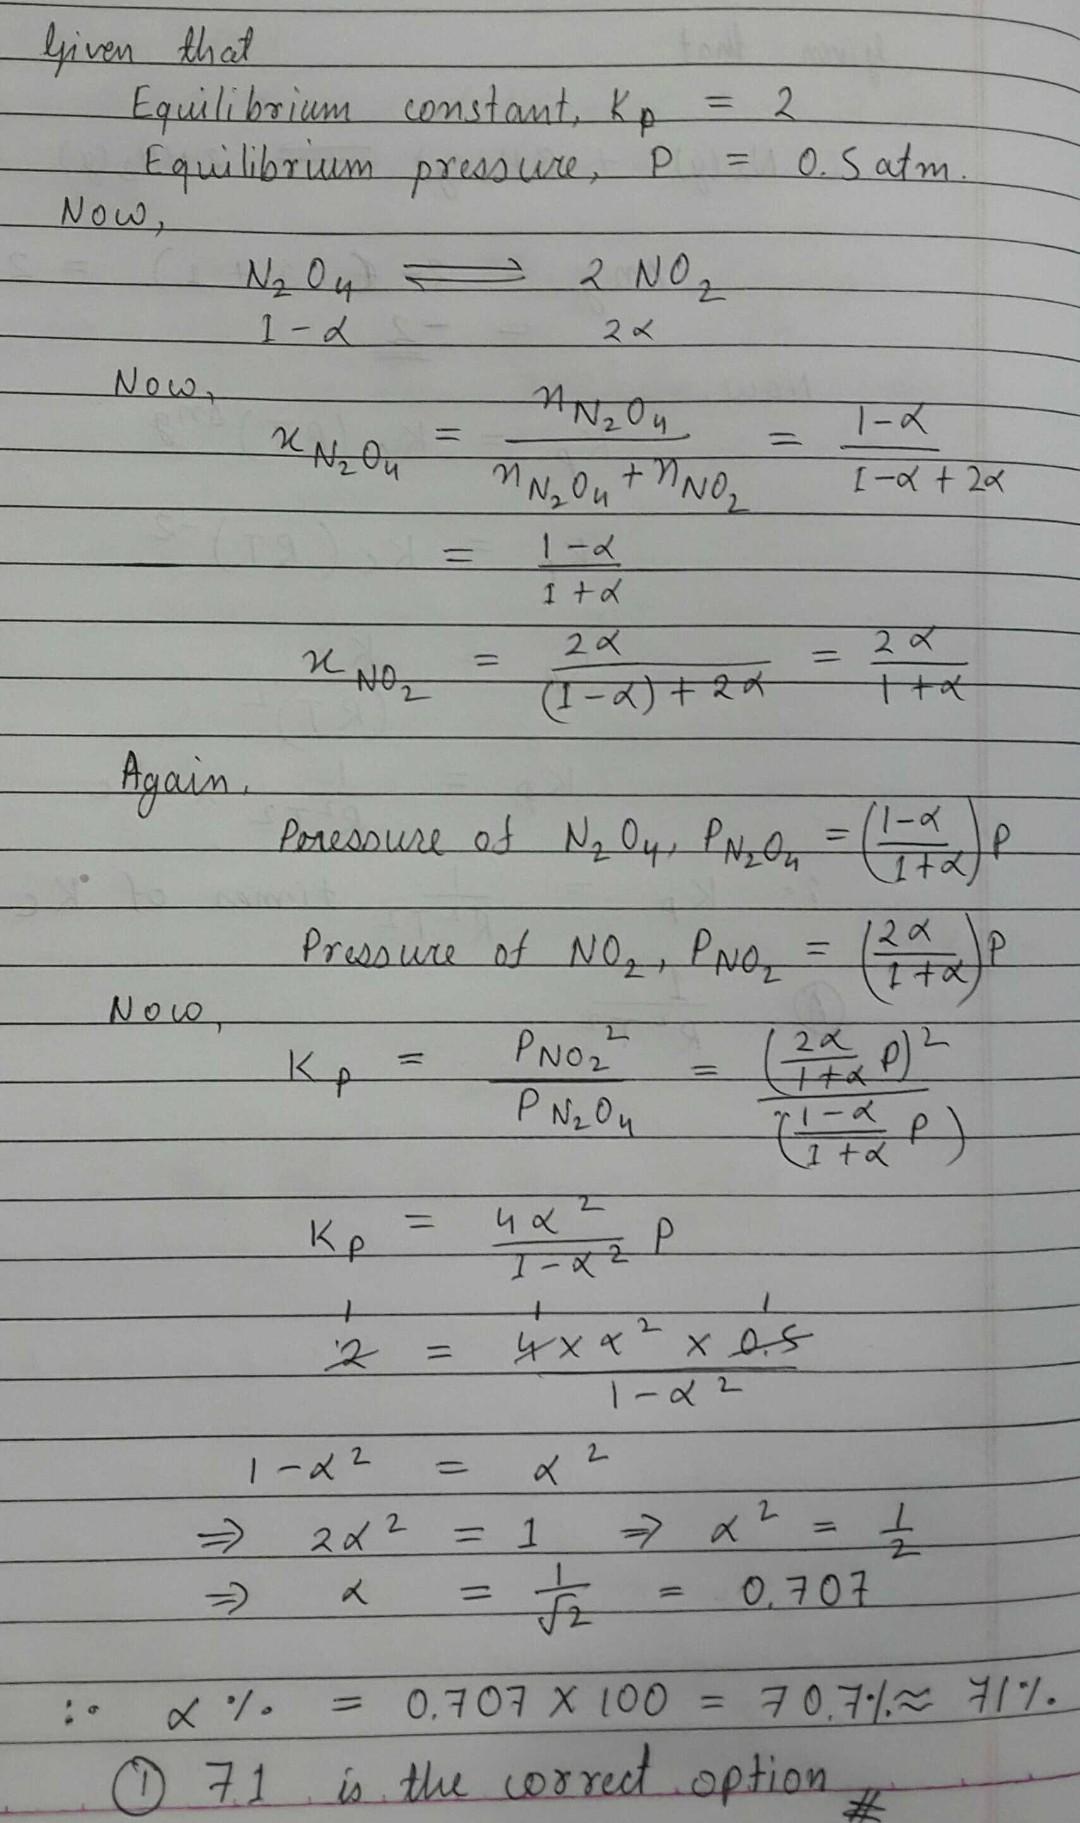 Given that
Equilibrium constant, Kp = 2
Equilibrium pressure, P = 0.5 atm.
Now,
N₂O₄ ⇌ 2 NO₂
1-α 2α
Now,
x N₂O₄ = n N₂O₄ / (n N₂O₄ + n NO₂) = (1-α) / (1-α + 2α)
= (1-α) / (1+α)
x NO₂ = 2α / ((1-α) + 2α) = 2α / (1+α)
Again,
Pressure of N₂O₄, P N₂O₄ = ((1-α) / (1+α)) P
Pressure of NO₂, P NO₂ = (2α / (1+α)) P
Now,
Kp = P NO₂² / P N₂O₄ = (2α / (1+α) P)² / ((1-α) / (1+α) P)
Kp = 4α² / (1-α²) P
1 1 1
2 = 4 × α² × 0.5 / (1-α²)
1-α² = α²
⇒ 2α² = 1 ⇒ α² = 1/2
⇒ α = 1/√2 = 0.707
∴ α % = 0.707 × 100 = 70.7% ≈ 71%.
① 71 is the correct option #